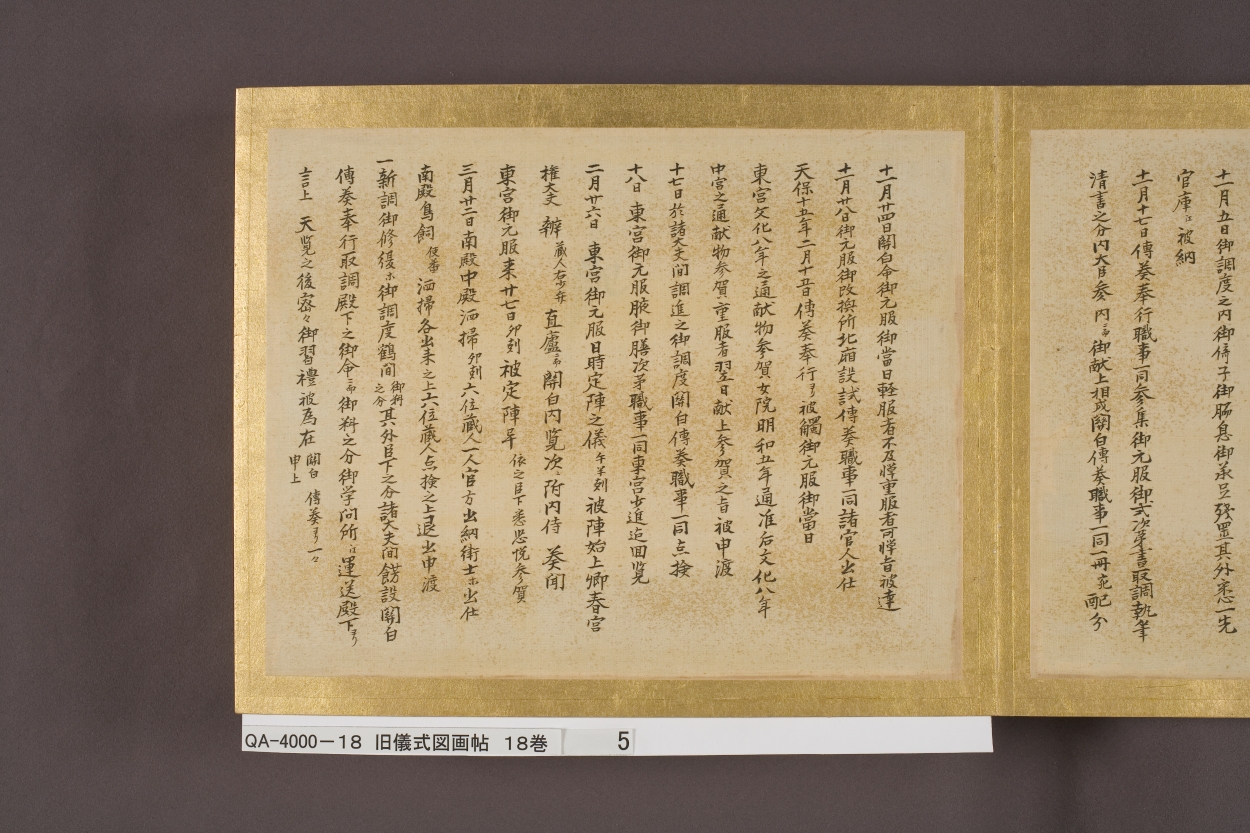 十一月五日御調度之内御倚子御脇息御承足残置其外悉一先
官庫江被納
十一月十七日傳奏奉行職事一同参集御元服御式次第書取調執筆
清書之分内大臣参 内ニ而御献上相成關白傳奏職事一同一冊宛配分
十一月廿四日關白命御元服御當日軽服者不及憚重服者可憚旨被達
十二月廿八日御元服御改換所北廂設試傳奏職事一同諸官人出仕
天保十五年二月十五日傳奏奉行ヨリ被觸御元服御當日
東宮文化八年之通献物参賀女院明和五年通准后文化八年
中宮之通献物参賀重服者翌日献上参賀之旨被申渡
十七日於諸大夫間調進之御調度關白傳奏職事一同点検
十八日 東宮御元服腋御膳次第職事一同東宮大進追回覧
二月廿六日 東宮御元服日時定陣之儀午半刻被陣始上卿春宮
権大夫 辨蔵人右少弁 直廬ニ而關白内覧次ニ附内侍 奏聞
東宮御元服来廿七日卯刻被定陣畢依之臣下悉恐悦参賀
三月廿二日南殿中殿洒掃卯刻六位蔵人一人官方出納衛士ホ出仕
南殿鳥飼便番洒掃各出来之上六位蔵人点検之上退出申渡
一新調御修復ホ御調度鶴間御料之分其外臣下之分諸大夫間餝設關白
傳奏奉行取調殿下之御命ニ而御料之分御学問所江運送殿下ヨリ
言上 天覧之後密々御習禮被為在關白申上 傳奏ヨリ一々
QA-4000-18 旧儀式図画帖 18巻 5